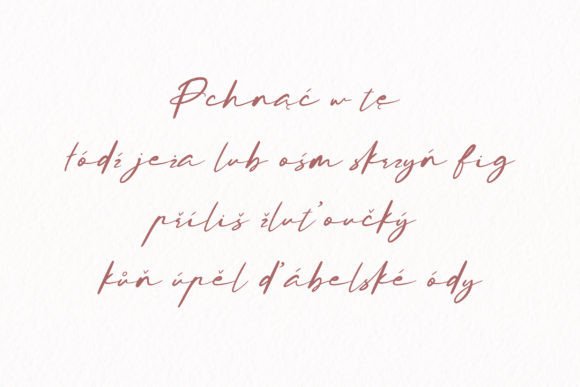 Pchnąć w tę
łódź jeża lub ośm skrzyń fig
příliš žluťoučký
kůň úpěl ďábelské ódy